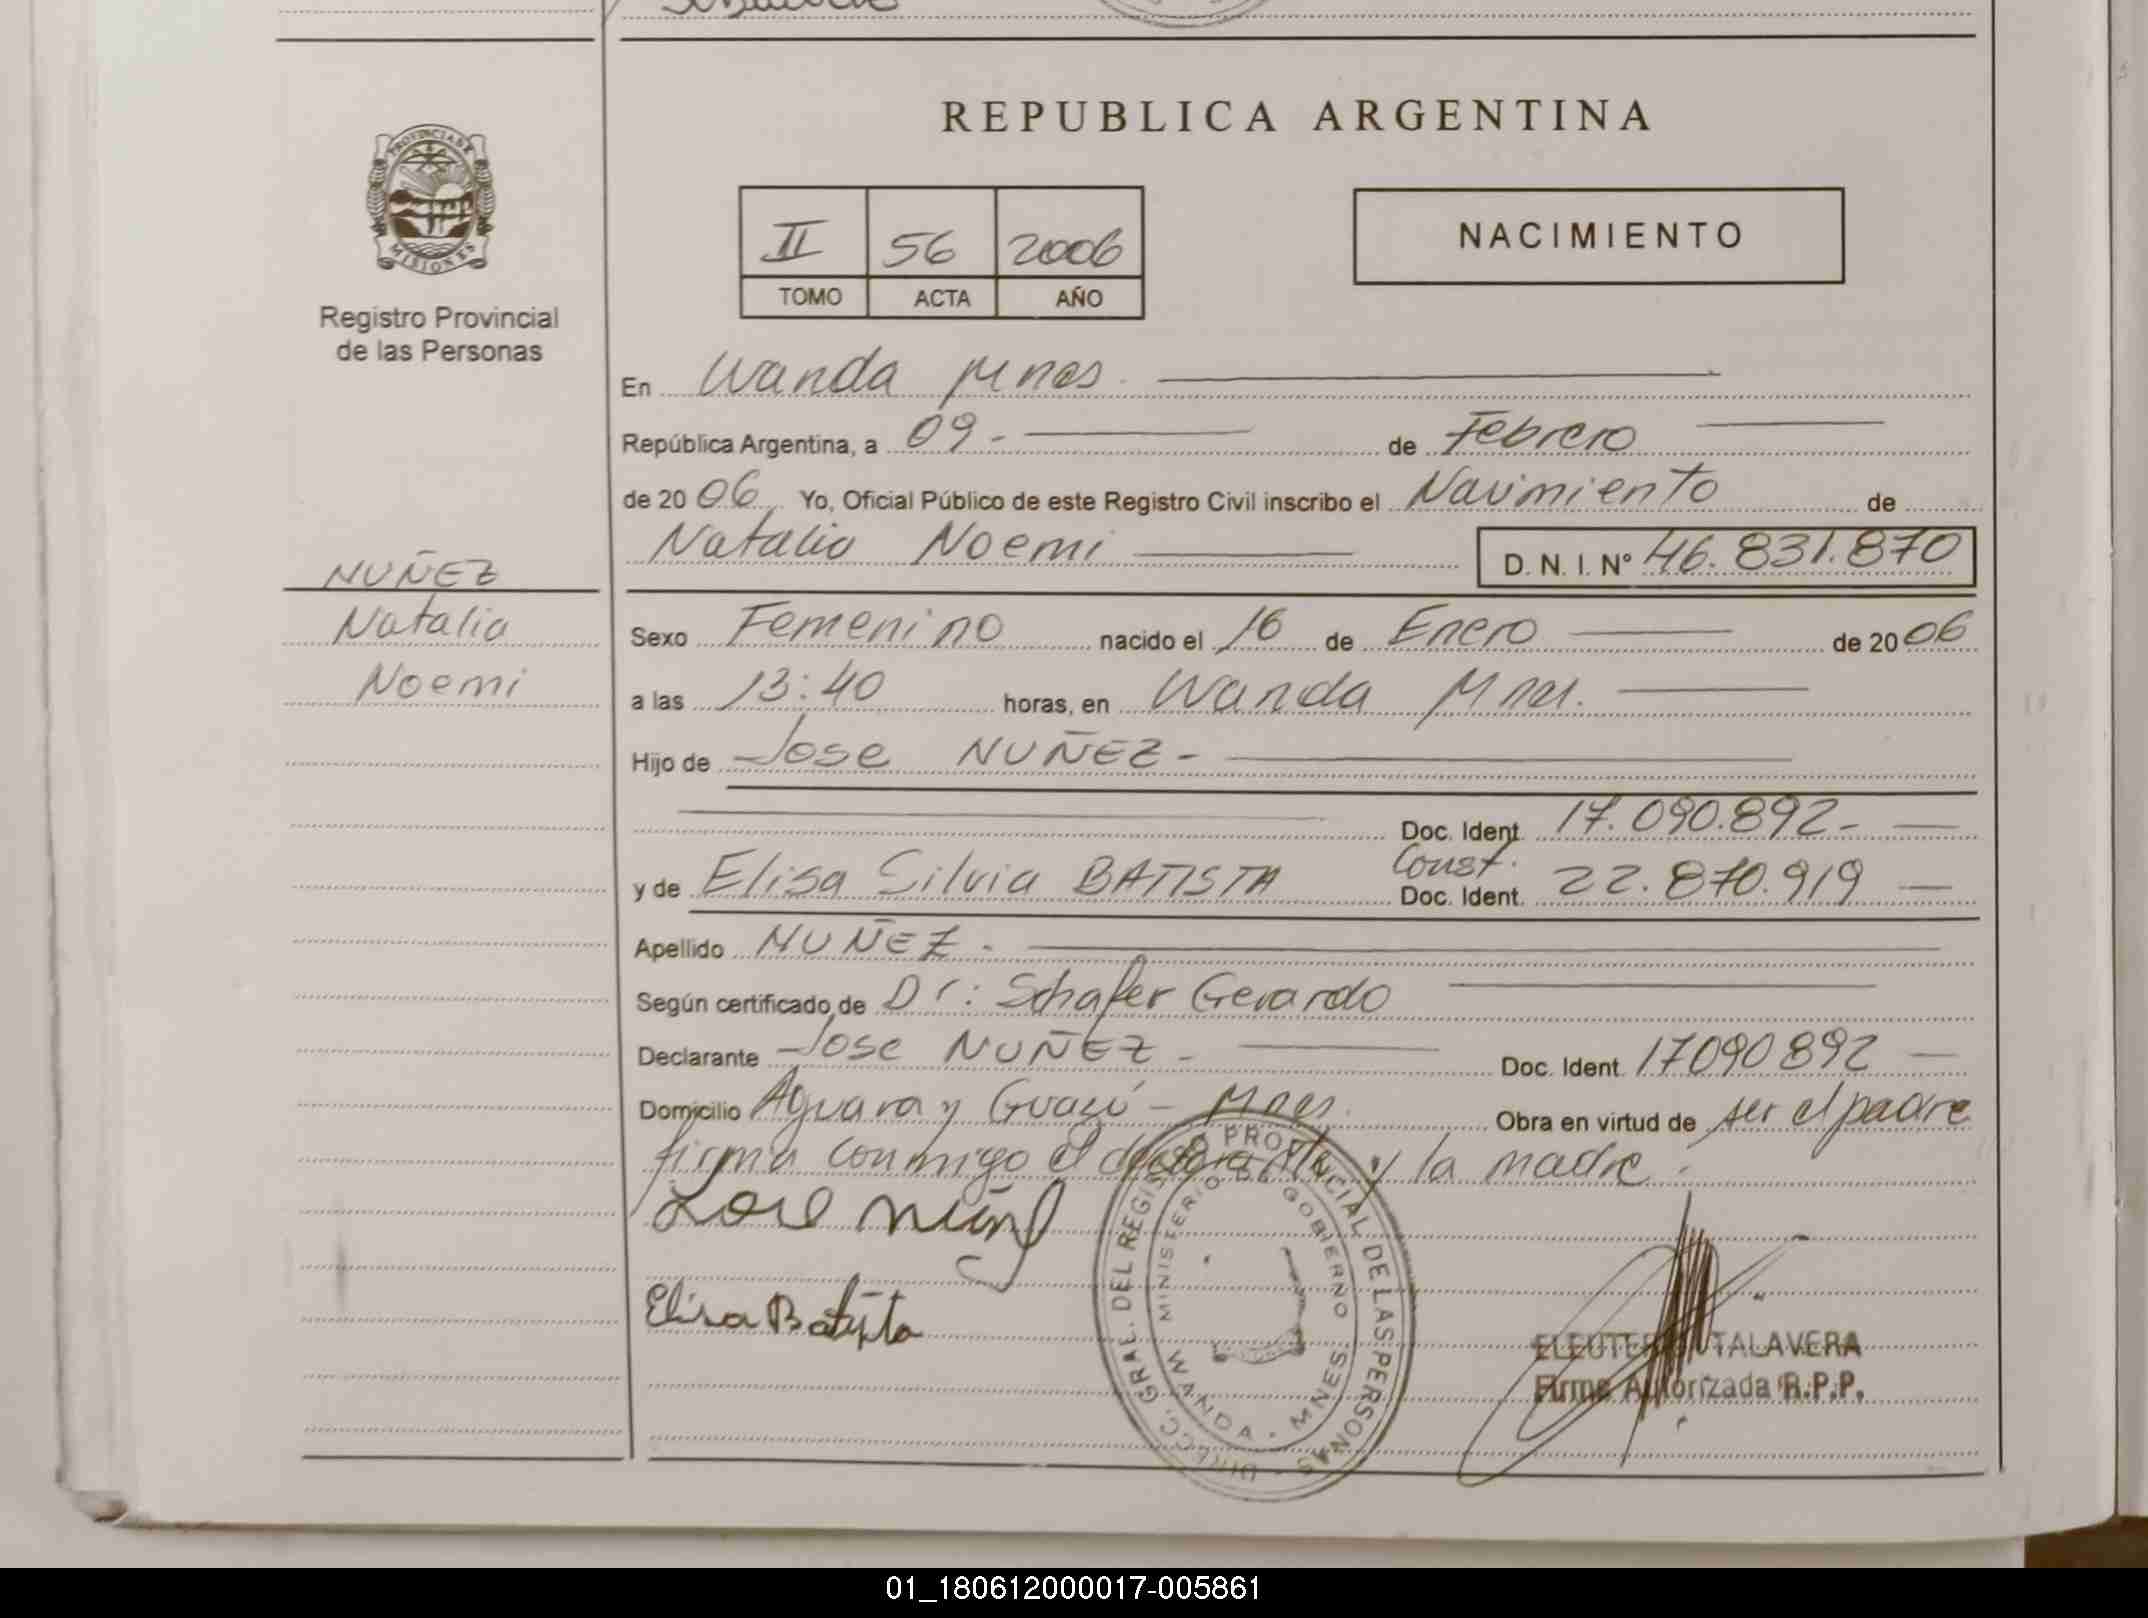 REPUBLICA ARGENTINA
PROVINCIA DE MISIONES
Registro Provincial
de las Personas
II 56 2006
TOMO ACTA AÑO
NACIMIENTO
En Wanda Mnes.
República Argentina, a 09.- de Febrero
de 20 06 Yo, Oficial Público de este Registro Civil inscribo el Nacimiento de
Natalia Noemi D. N. I. Nº 46.831.870
NUÑEZ
Natalia
Noemi
Sexo Femenino nacido el 16 de Enero de 20 06
a las 13:40 horas, en Wanda Mnes.
Hijo de Jose NUÑEZ-
Doc. Ident. 17.090.892-
Const.
y de Elisa Silvia BATISTA Doc. Ident. 22.870.919
Apellido NUÑEZ-
Según certificado de Dr: Schafer Gerardo
Declarante Jose NUÑEZ- Doc. Ident. 17090892
Domicilio Aguaray Guazú - Mnes. Obra en virtud de ser el padre
firma conmigo el declarante y la madre.
Jose Nuñez
Elisa Batista
DIRECC. GRAL. DEL REGISTRO PROVINCIAL DE LAS PERSONAS
MINISTERIO DE GOBIERNO
WANDA - MNES
ELEUTERIO TALAVERA
Firma Autorizada R.P.P.
01_180612000017-005861